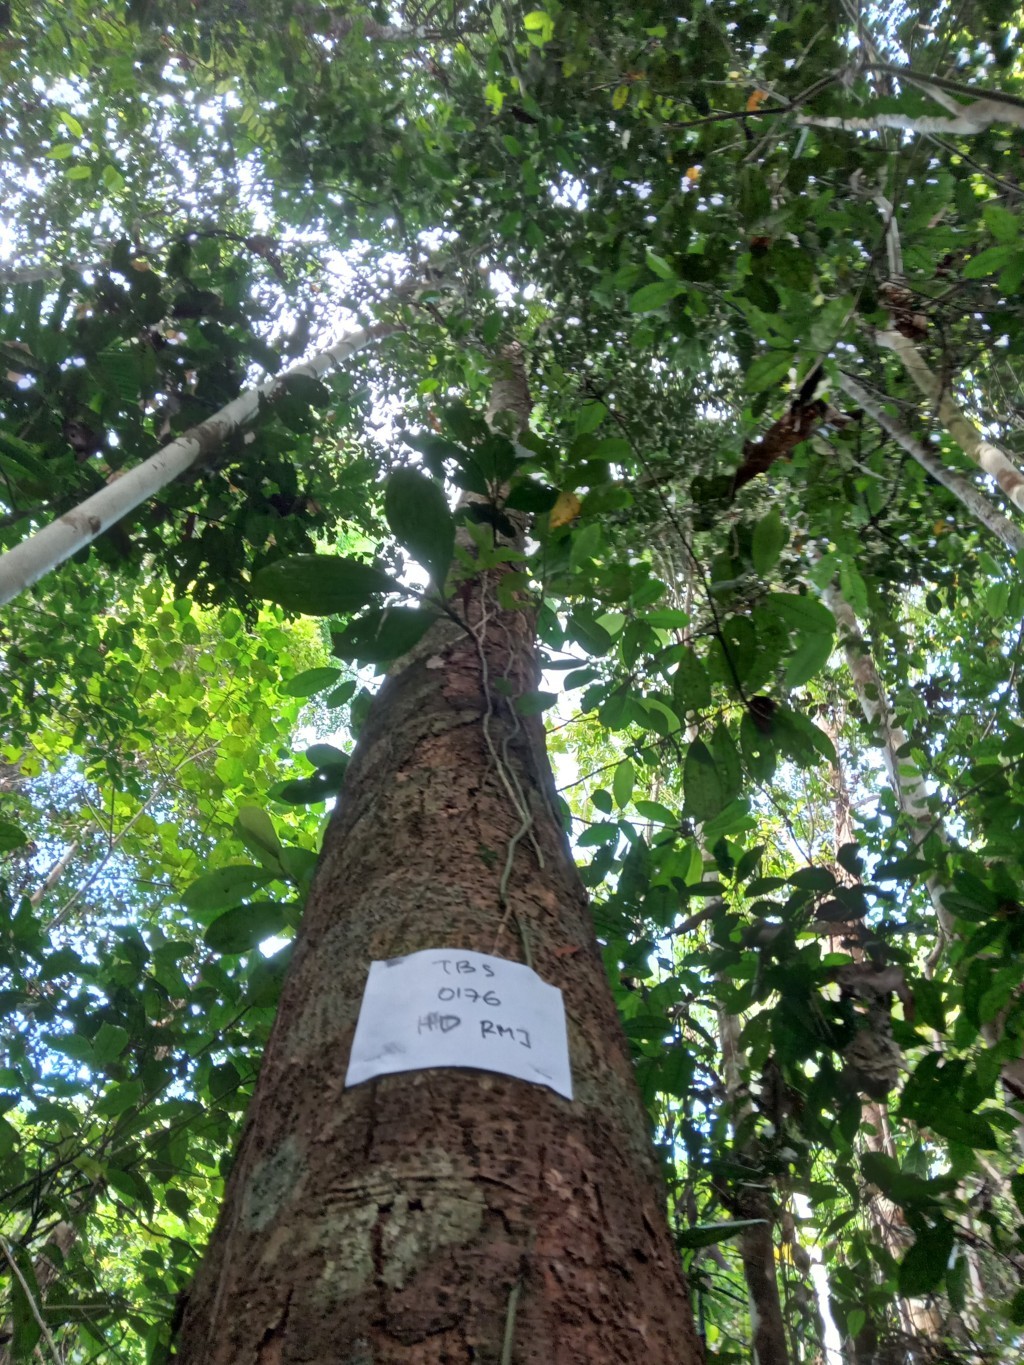 TBS
0176
HD RMJ